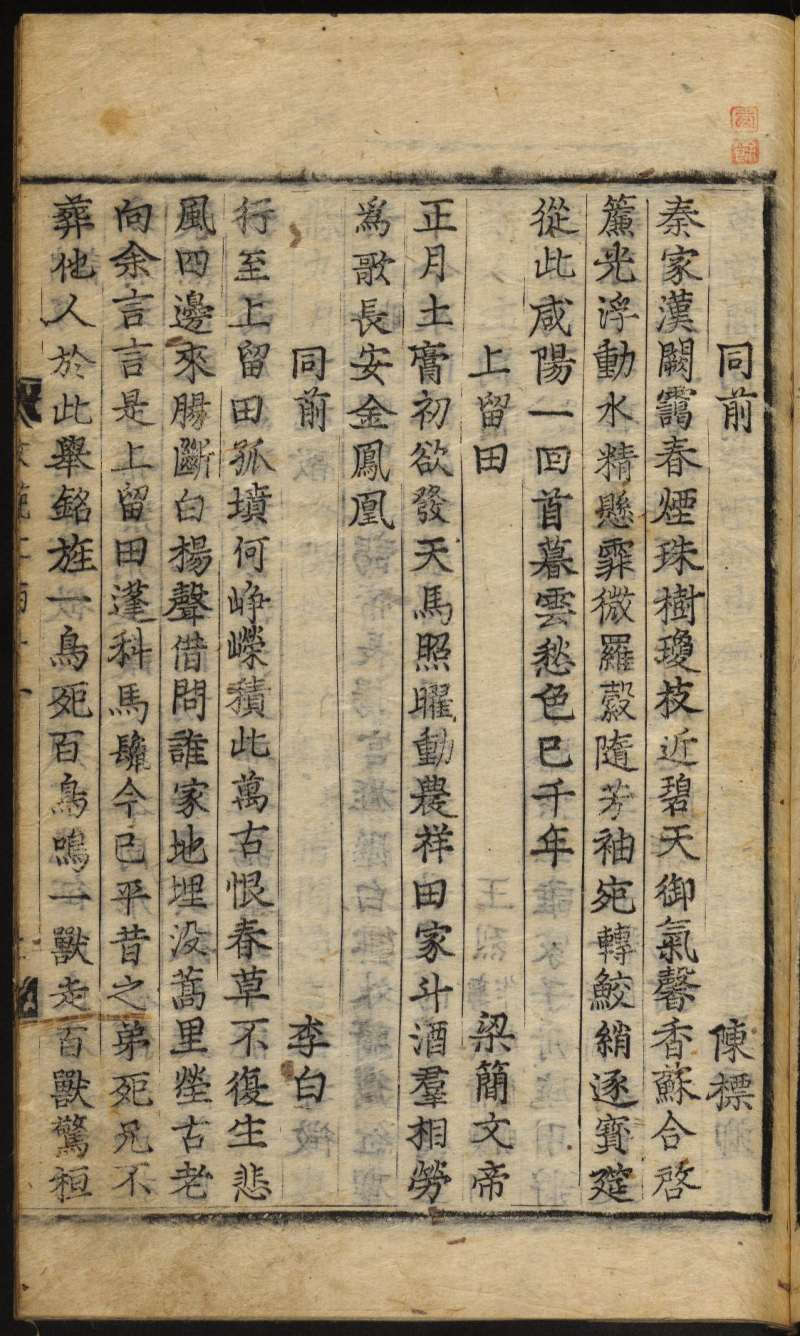 同前 陳標
秦家漢闕靄春煙珠樹瓊枝近碧天御氣馨香蘇合啓
簾光浮動水精懸霏微羅縠隨芳袖宛轉鮫綃逐寳筵
從此咸陽一回首暮雲愁色已千年
上留田 梁簡文帝
正月土膏初欲發天馬照曜動農祥田家斗酒羣相勞
爲歌長安金鳳凰
同前 李白
行至上留田孤墳何崢嶸積此萬古恨春草不復生悲
風四邊來腸斷白揚聲借問誰家地埋没蒿里塋古老
向余言言是上留田蓬科馬鬛今已平昔之弟死兄不
葬他人於此舉銘旌一鳥死百鳥鳴一獸走百獸驚桓